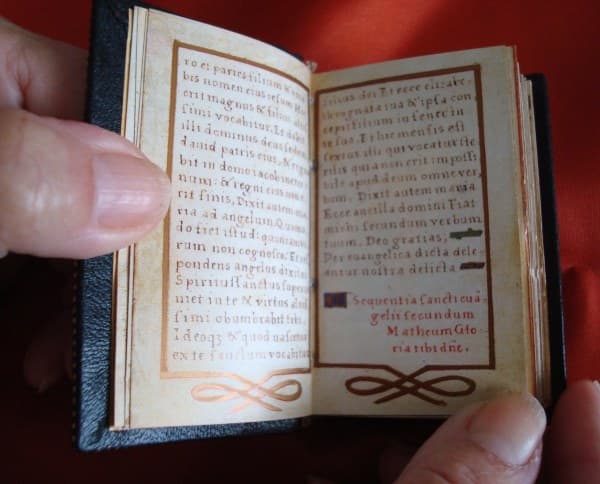 ro et paries filium &
bis nomen eius iesum
erit magnus & filius
simi vocabitur. Et dabit
illi dominus deus sedem
david patris eius, & regna
bit in domo iacob in eter
num: & regni eius non e
rit finis, Dixit autem ma
ria ad angelum. Quomo
do fiet istud: quoniam vi
rum non cognosco. Et
pondens angelus dixit
Spiritus sanctus superve
niet in te & virtus
simi obumbrabit tibi.
Ideoqʒ & quod nascetur
ex te sanctum vocabitur
filius dei Et ecce elizabe
th cognata tua & ipsa con
cepit filium in senec tu
te sua. Et hic mensis est
sextus illi qui vocatur ste
rilis quia non erit impossi
bile apud deum omne ver,
bum, Dixit autem maria
Ecce ancilla domini Fiat
michi secundum verbum
tuum. Deo gratias;
Per euangelica dicta dele,
antur nostra delicta
Sequentia sancti euā
gelii secundum
Matheum Glo
ria tibi dn̄e.